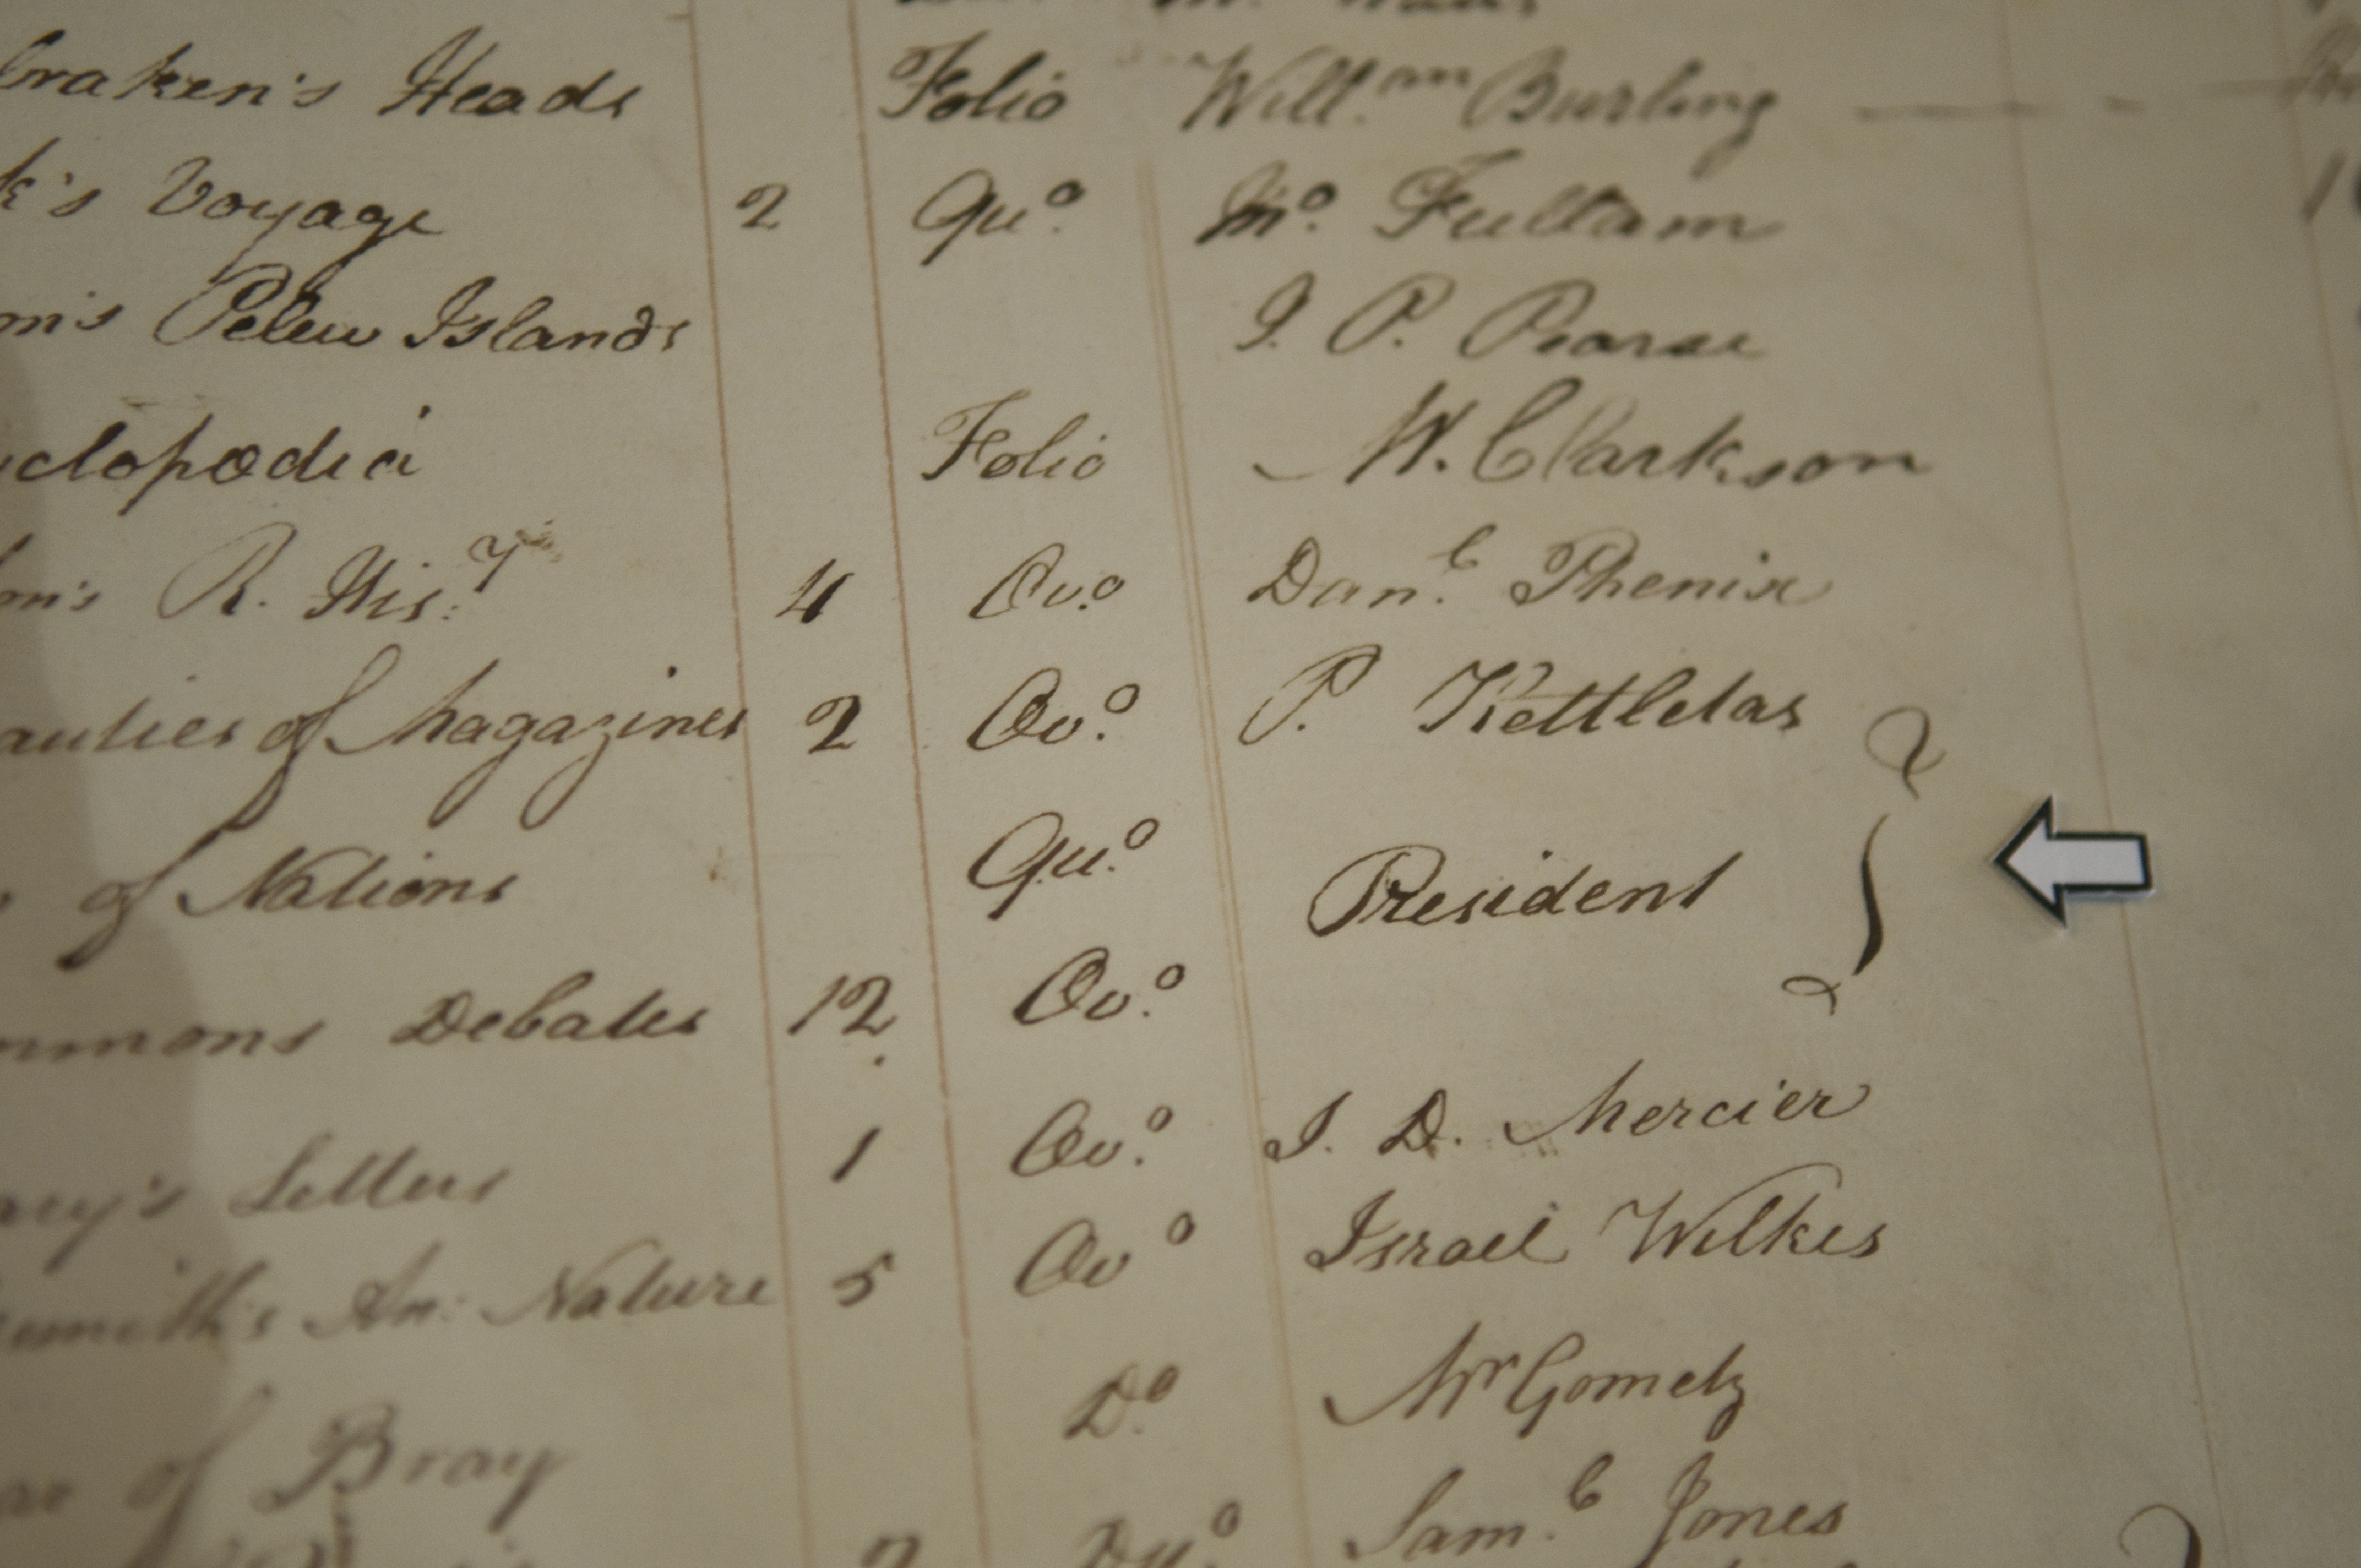 Heads Folio Will.am Burling
k's Voyage 2 Qu.o Mo. Fullam
m's Pelew Islands I. P. Pearse
clopædia Folio W. Clarkson
on's R. His:y 4 Ov.o Dan.l Phenix
auties of Magazines 2 Ov.o P. Kettletas
of Nations Qu.o
President
mmons Debates 12 Ov.o
Letters 1 Ov.o I. D. Mercier
smith's An: Nature 5 Ov.o Israel Wilkes
of Bray D.o Mr Gometz
Sam.l Jones